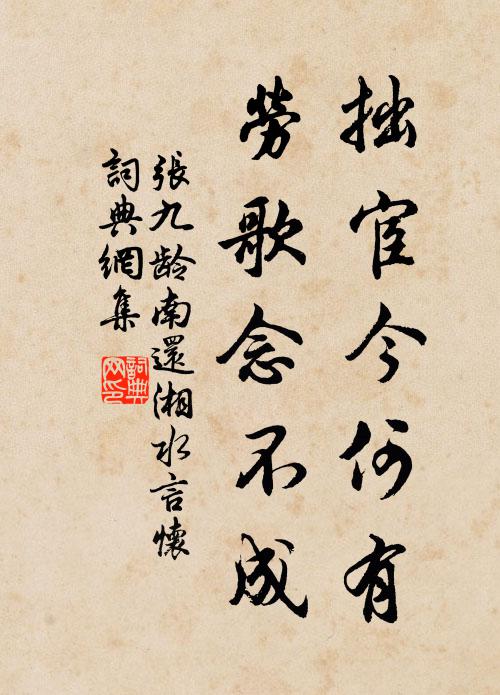 拙宦今何有
勞歌念不成
張九龄南還湘水言懷
詞典網集
詞典
网印